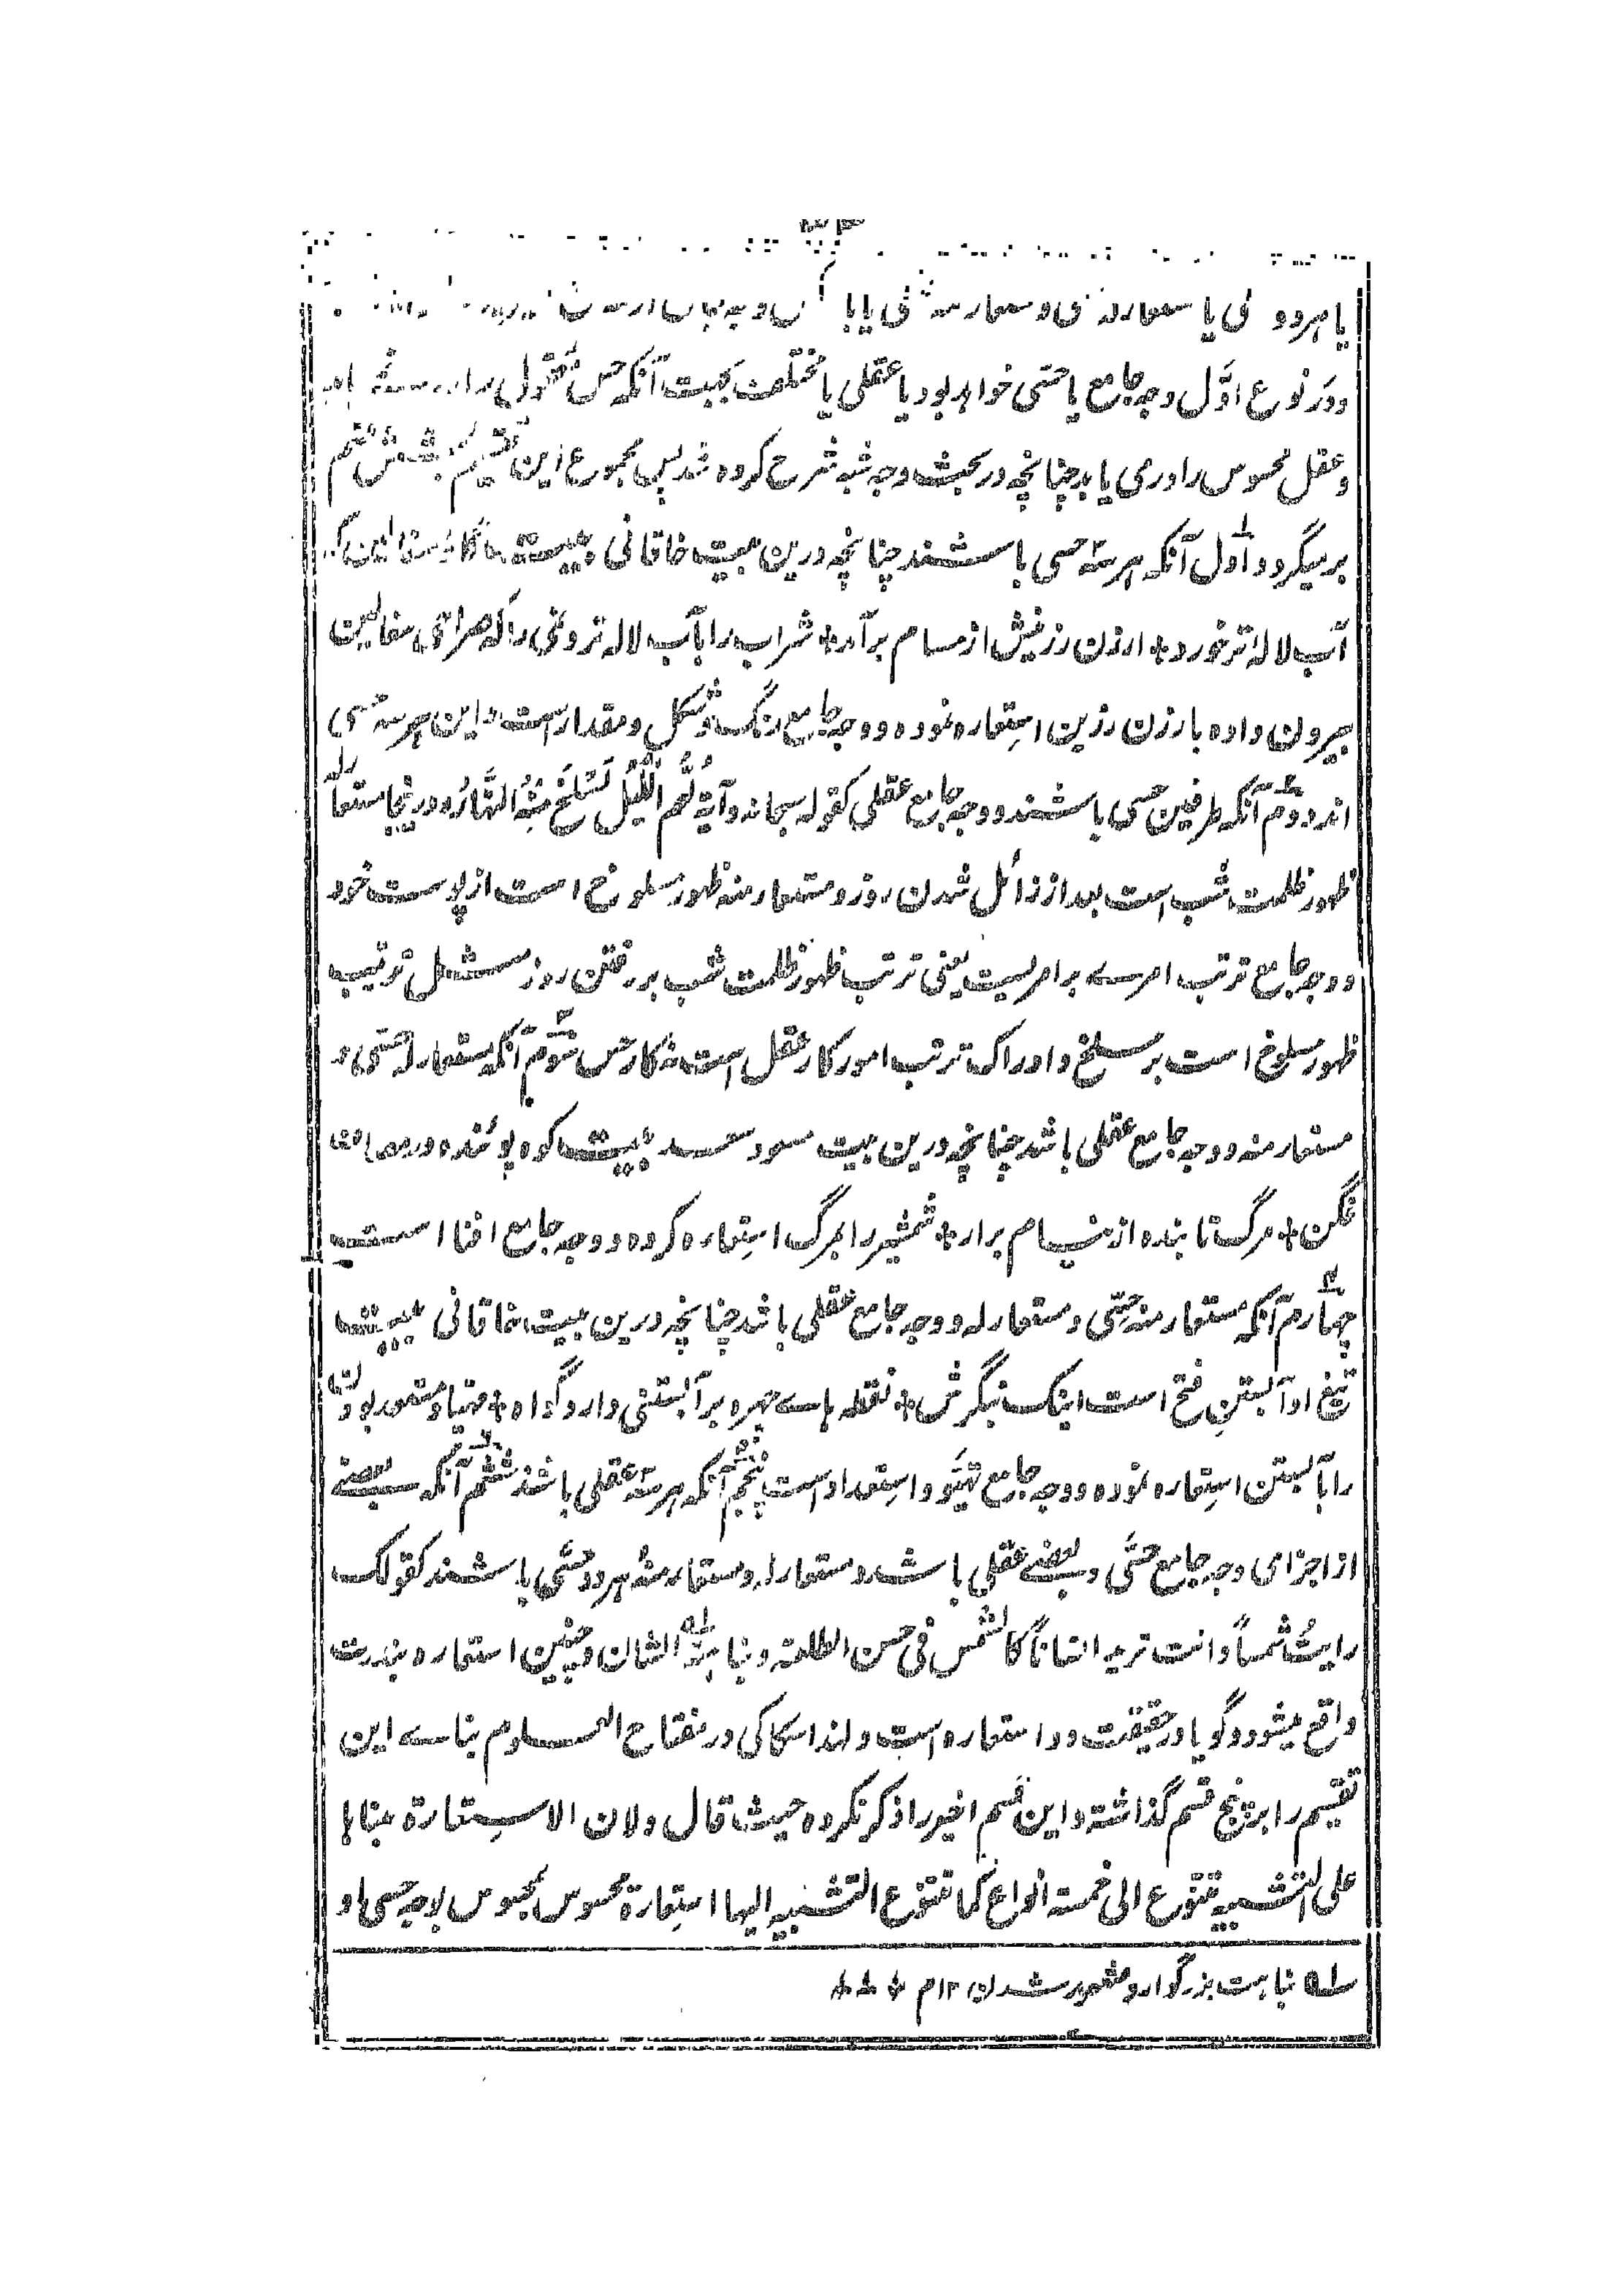 یا هر دو
و در نوع اوّل وجه جامع یا حسّی خواهد بود یا عقلی یا مختلف بجهت آنکه حس
و عقل محسوس را در می یابد چنانچه در بحث وجه شبه شرح کرده شد پس مجموع این تقسیم بشش قسم
بر میگردد اول آنکه هر سه حسی باشند چنانچه درین بیت خاقانی بیت
آب لاله تر خورد * ارزن رزینش از مسام برآمد * شراب را بآب لاله تر و نمی را که صراحی سفالین
بیرون داده بارزن رزین استعاره نموده و وجه جامع رنگ و شکل و مقدارست و این هر سه حسی
اند دوّم آنکه طرفین حسی باشند و وجه جامع عقلی کقوله سبحانه وآیة لّهم اللّیل نسلخ منه النّهار و درینجا مستعار له
ظهور ظلمت شب است بعد از زائل شدن روز و مستعار منه ظهور مسلوخ است از پوست خود
و وجه جامع ترتب امرے بر امریست یعنی ترتب ظهور ظلمت شب بر رفتن روز مثل ترتیب
ظهور مسلوخ است بر سلخ و ادراک ترتب امور کار عقل است نه کار حس سوّم آنکه مستعار له حسّی و
مستعار منه و وجه جامع عقلی باشد چنانچه درین بیت مسعود سعد بیت کوه پوئنده در مصاف
فگن * مرگ تابنده از نیام برار * شمشیر را بمرگ استعاره کرده و وجه جامع افنا است
چهارم آنکه مستعار منه حسّی و مستعار له و وجه جامع عقلی باشد چنانچه درین بیت خاقانی بیت
تیغ او آبستن فتح است اینک بنگرش * نقطه هاے چهره بر آبستنی دارد گواه * مهیا و مستعد بودن
را بآبستن استعاره نموده و وجه جامع تهیّو و استعداد است پنجم آنکه هر سه عقلی باشند ششم آنکه بعضے
از اجزای وجه جامع حسّی و بعضے عقلی باشد و مستعار له و مستعار منه هر دو حسّی باشند کقولک
رایتُ شمساً و انت ترید انساناً کالشمس فی حسن الطلعة و نباهة الشان و چنین استعاره بندرت
واقع میشود و گویا در حقیقت دو استعاره است و لهذا سکاکی در مفتاح العلوم بناے این
تقسیم را بر پنج قسم گذاشته و این قسم اخیر را ذکر نکرده حیث قال و لان الاستعارة مبناها
علی التشبیه تتنوع الی خمسة انواع کما تتنوع التشبیه الیها استعارة محسوس بمحسوس لوجه حسی او
له نباهت بزرگوار و مشهور شدن ۱۲ م